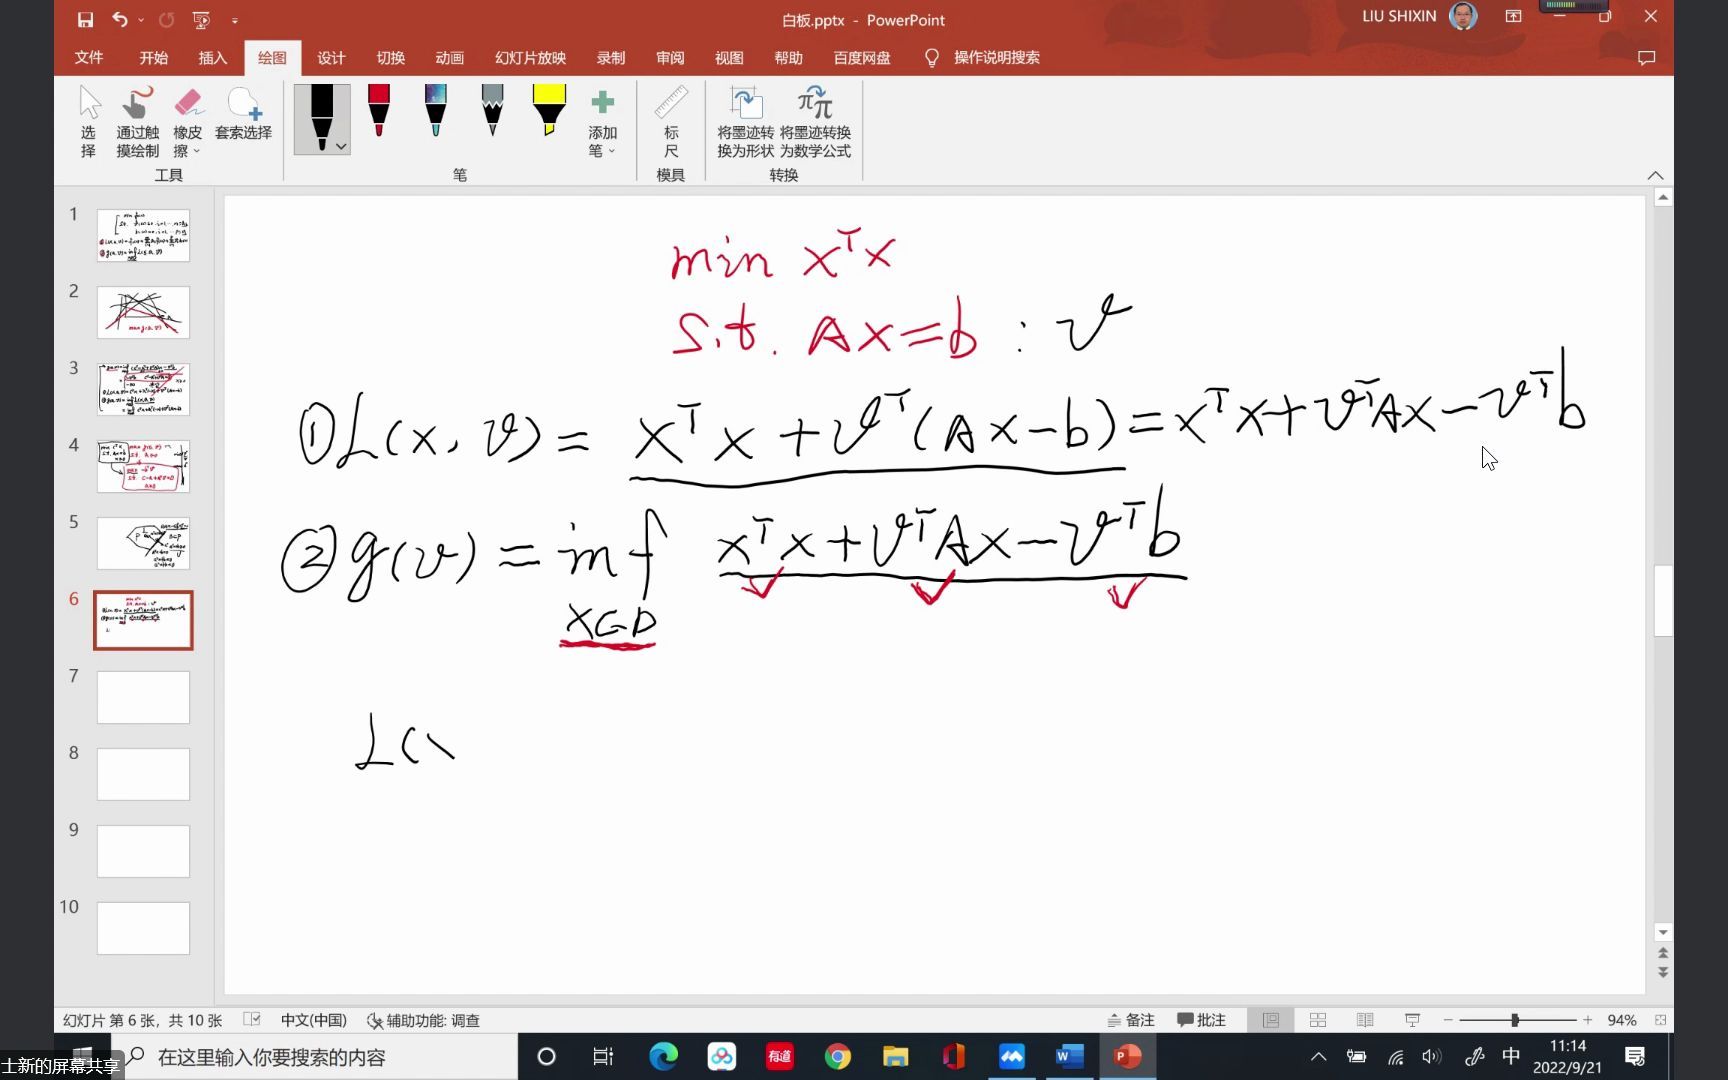 白板.pptx - PowerPoint
LIU SHIXIN
文件 开始 插入 绘图 设计 切换 动画 幻灯片放映 录制 审阅 视图 帮助 百度网盘 操作说明搜索
选择 通过触摸绘制 橡皮擦 套索选择 添加笔 标尺 将墨迹转换为形状 将墨迹转换为数学公式
工具 笔 模具 转换
1
2
3
4
5
6
7
8
9
10
min xᵀx
s.t. Ax=b : v
①L(x, v) = xᵀx + vᵀ(Ax-b) = xᵀx + vᵀAx - vᵀb
②g(v) = inf xᵀx + vᵀAx - vᵀb
x∈D
L(
幻灯片 第 6 张，共 10 张 中文(中国) 辅助功能: 调查 备注 批注 94%
士新的屏幕共享
在这里输入你要搜索的内容
有道
中
11:14
2022/9/21